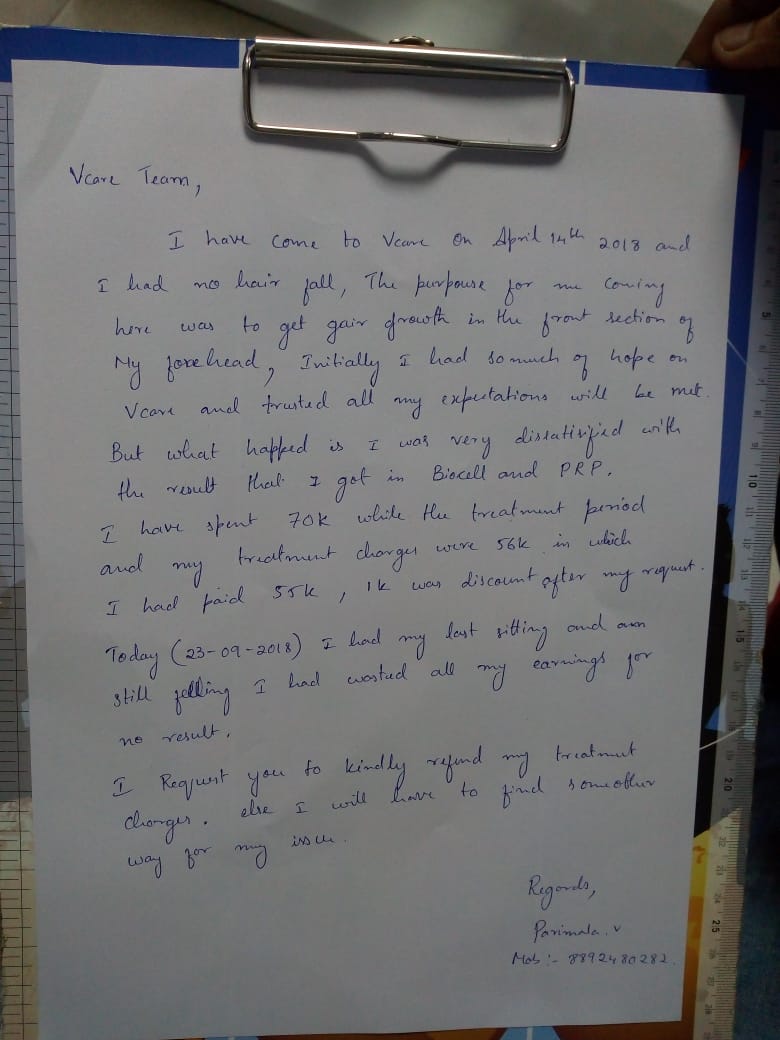 Vcare Team,
I have come to Vcare on April 14th 2018 and
I had no hair fall, The purpouse for me coming
here was to get gair growth in the front section of
My forehead, Initially I had so much of hope on
Vcare and trusted all my expectations will be met.
But what happed is I was very dissatisfied with
the result that I got in Biocell and PRP.
I have spent 70k while the treatment period
and my treatment charges were 56k in which
I had paid 55k, 1k was discount after my request.
Today (23-09-2018) I had my last sitting and am
still felling I had wasted all my earnings for
no result.
I Request you to kindly refund my treatment
charges. else I will have to find someother
way for my issue.
Regards,
Parimala.V
Mob :- 8892480282.
5
10
15
20
25